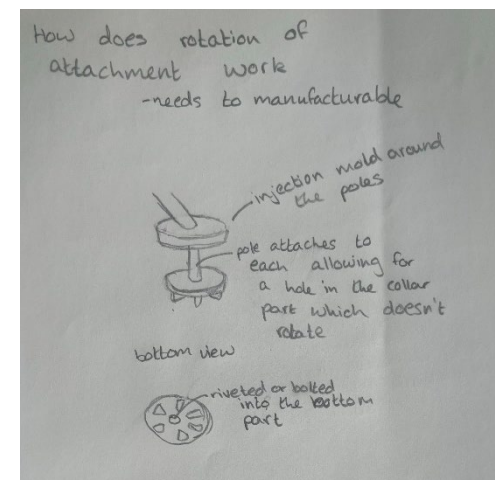 How does rotation of
attachment work
-needs to manufacturable
injection mold around
the poles
pole attaches to
each allowing for
a hole in the collar
part which doesn't
rotate
bottom view
riveted or bolted
into the bottom
part